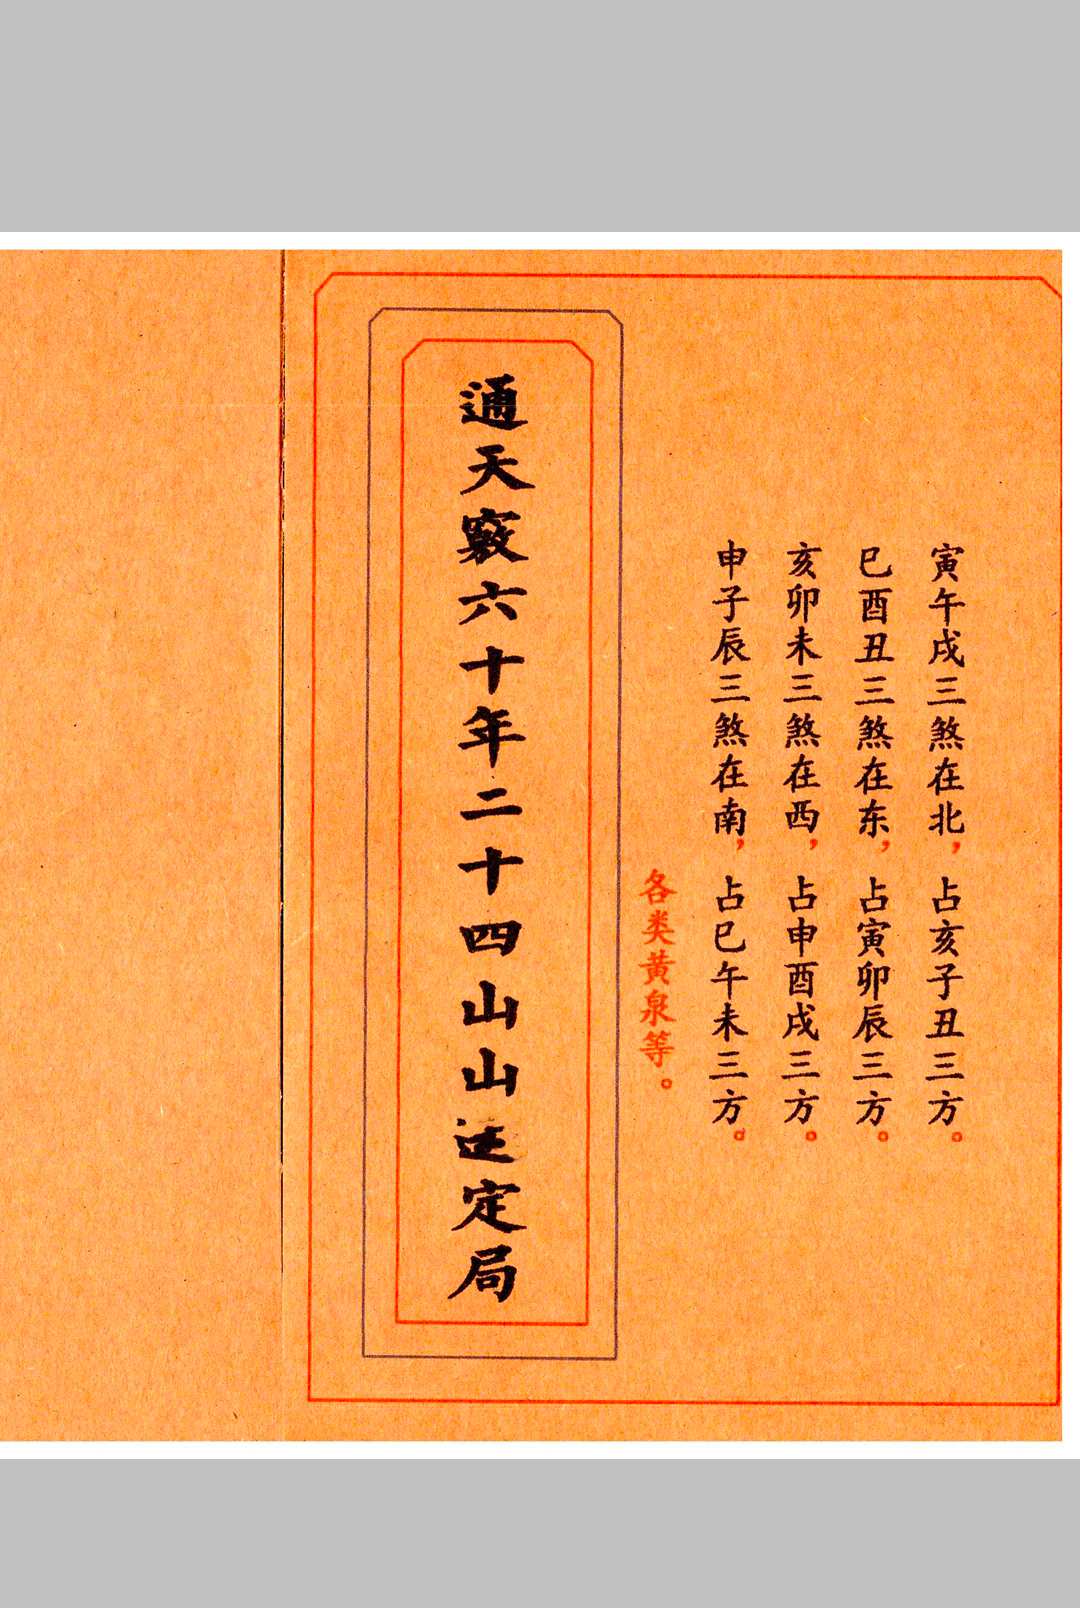 寅午戌三煞在北，占亥子丑三方。
巳酉丑三煞在东，占寅卯辰三方。
亥卯未三煞在西，占申酉戌三方。
申子辰三煞在南，占巳午未三方。
各类黄泉等。
通天窍六十年二十四山山运定局